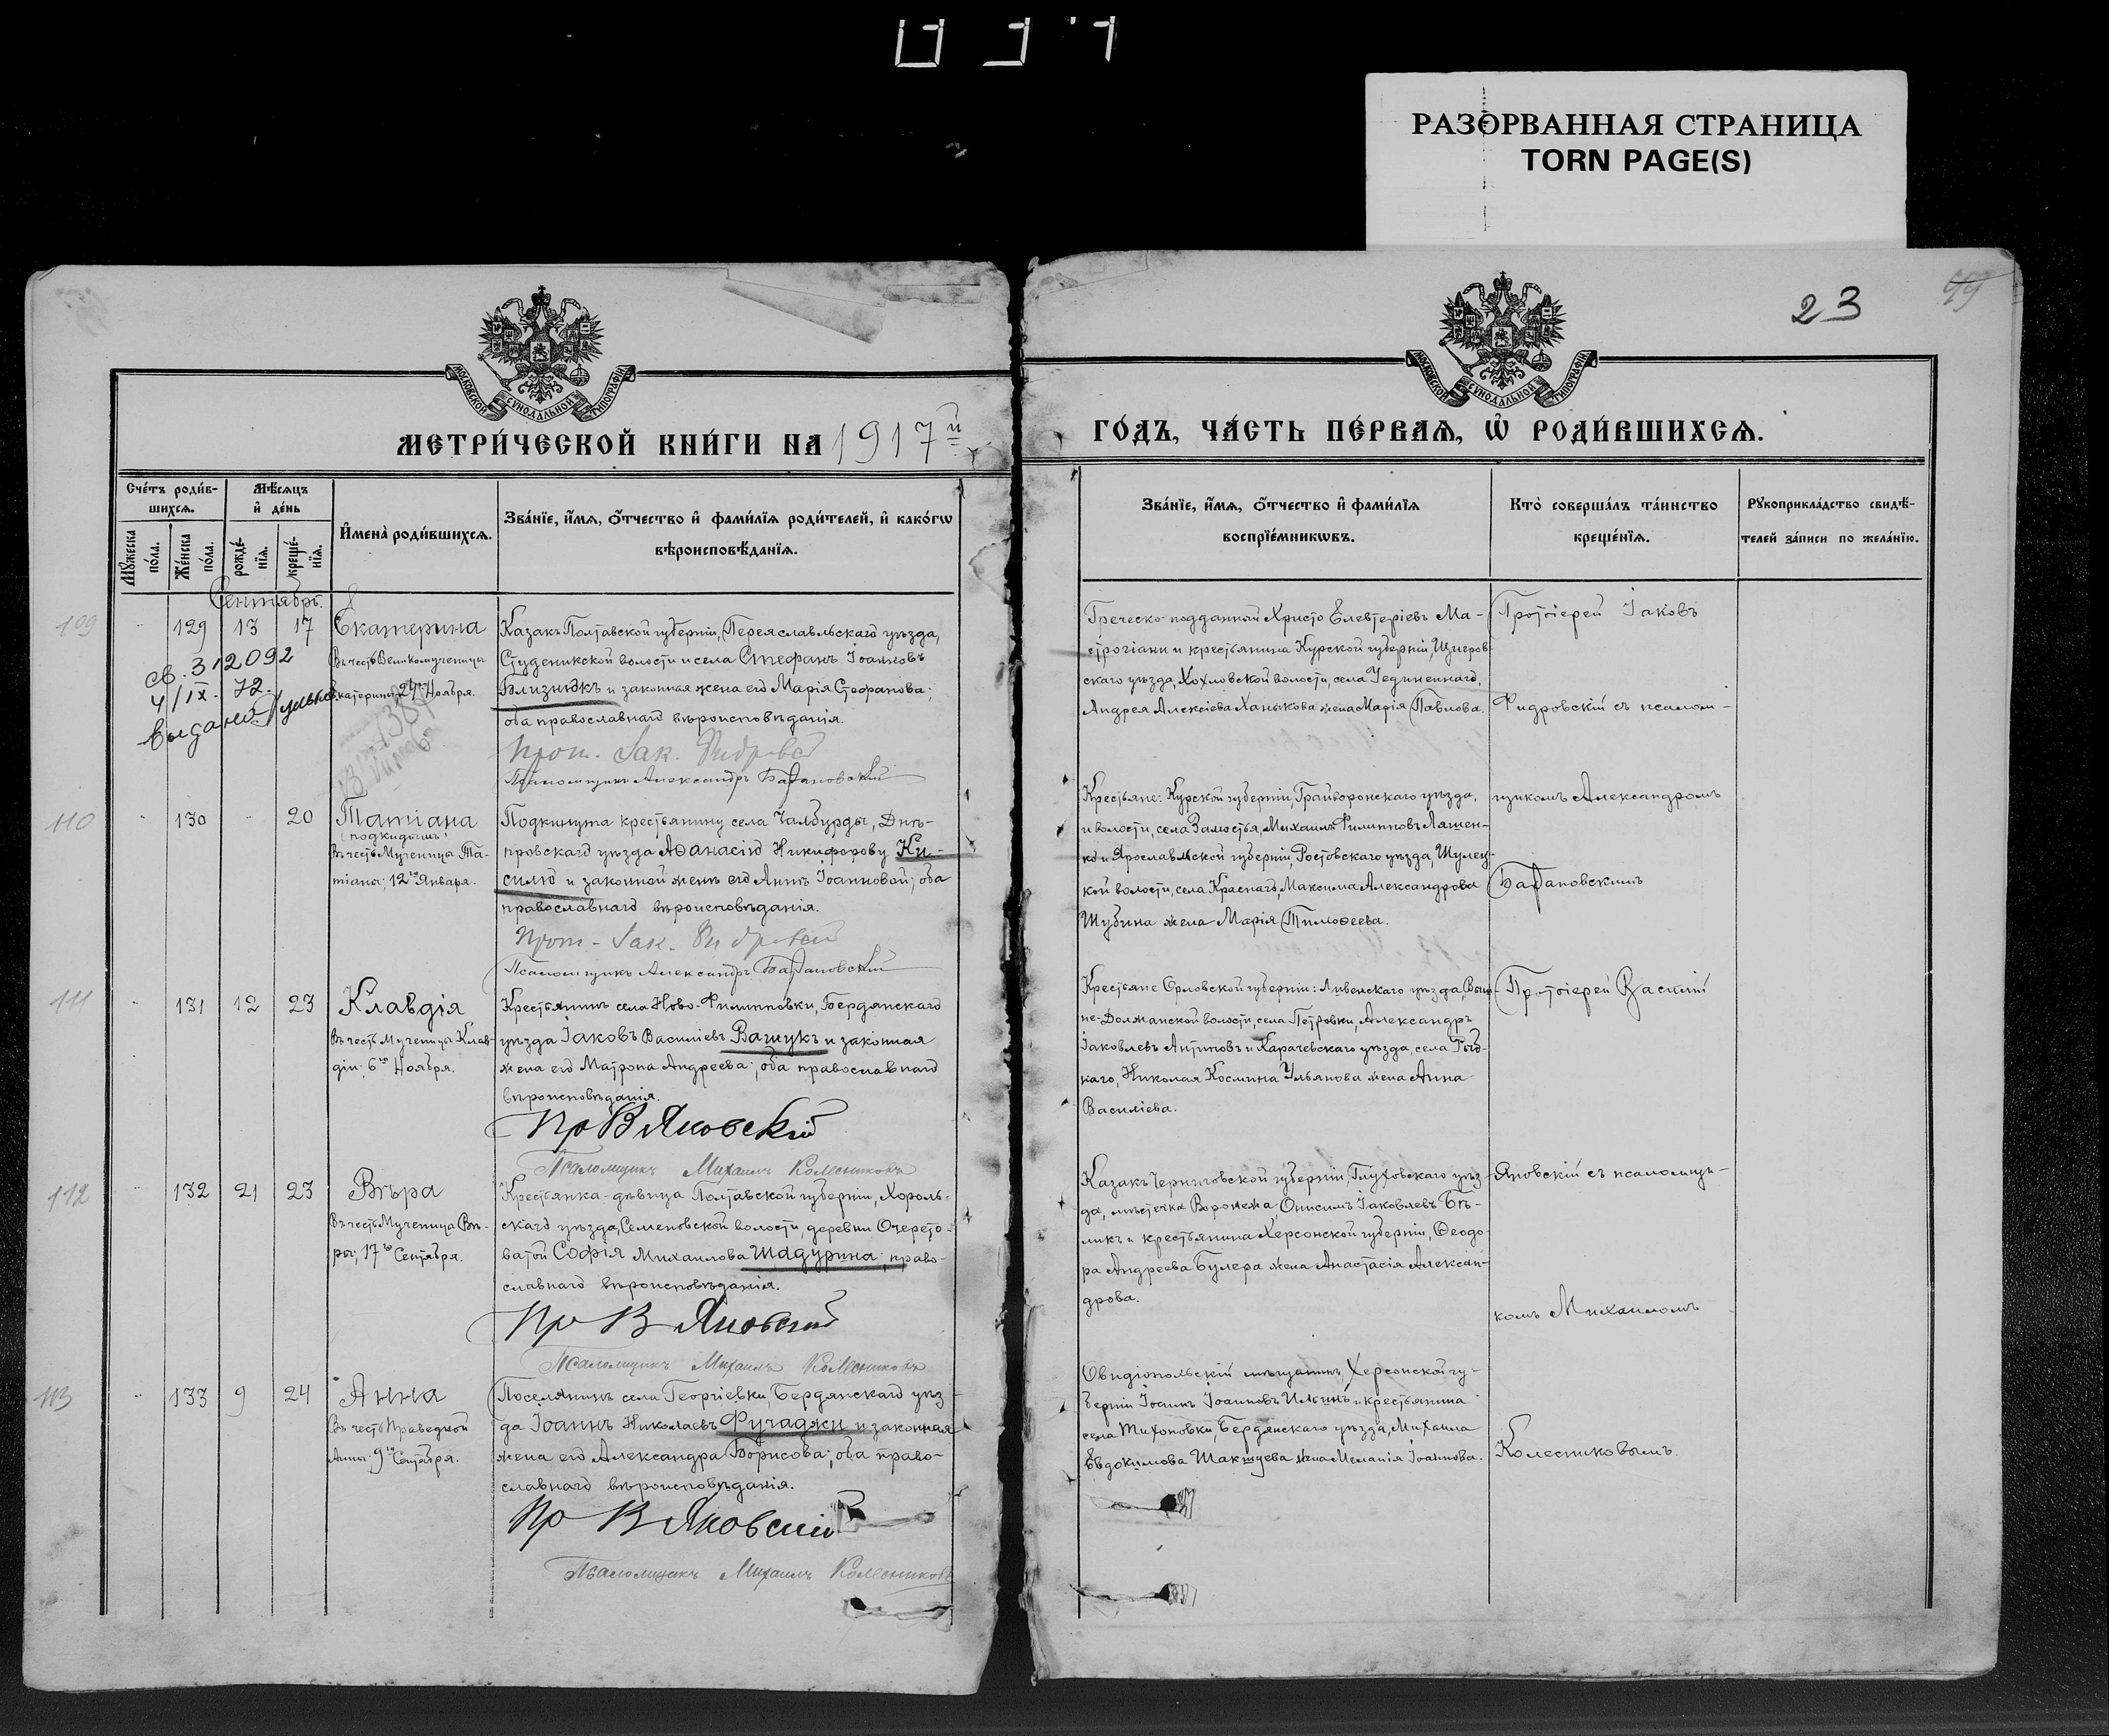 РАЗОРВАННАЯ СТРАНИЦА
TORN PAGE(S)
23
99
МОСКОВСКОЙ СУНОДАЛЬНОЙ ТИПОГРАФІИ
МОСКОВСКОЙ СУНОДАЛЬНОЙ ТИПОГРАФІИ
МЕТРИ́ЧЕСКОЙ КНИ́ГИ НА 1917й
ГО́ДЪ, ЧА́СТЬ ПЕ́РВАѦ, Ѡ҆ РОДИ́ВШИХСѦ.
Сче́тъ роди́в-
шихсѧ.
Мѣ́сѧцъ
и҆ де́нь
И҆мена̀ роди́вшихсѧ.
Зва́нїе, и҆́мѧ, ѻ҆́тчество и҆ фами́лїѧ роди́телей, и҆ како́гѡ
вѣроисповѣ́данїѧ.
Мꙋ́жеска
по́ла.
Же́нска
по́ла.
рожде́-
нїѧ.
креще́-
нїѧ.
Зва́нїе, и҆́мѧ, ѻ҆́тчество и҆ фами́лїѧ
воспрїе́мникѡвъ.
Кто̀ соверша́лъ та́инство
креще́нїѧ.
Рꙋкоприкла́дство свидѣ́-
телей за́писи по жела́нїю.
Сентябрь.
109 129 13 17 Екатерина
Въ честь Великомученицы
Екатерины, 24го Ноября.
св. 312092
4/IX. 72.
выдано
Казакъ Полтавской губерніи, Переяславльскаго уѣзда,
Студеникской волости и села Стефанъ Іоанновъ
Близнюкъ и законная жена его Марія Стефанова;
оба православнаго вѣроисповѣданія.
Прот. Іак. Фидровскій
Псаломщикъ Александръ Барановскій
Греческо-подданный Христо Елевтеріевъ Ма-
строгіани и крестьянина Курской губерніи, Щигров-
скаго уѣзда, Хохловской волости, села Уединеннаго,
Андрея Алексіева Ханыкова жена Марія Павлова.
Протоіерей Іаковъ
Фидровскій съ псалом-
110 130 20 Татіана
(подкидышъ)
Въ честь Мученицы Та-
тіаны, 12го Января.
Подкинута крестьянину села Чалбурды, Днѣ-
провскаго уѣзда Аѳанасію Никифорову Ки-
силю и законной женѣ его Аннѣ Іоанновой; оба
православнаго вѣроисповѣданія.
Прот. Іак. Фидровскій
Псаломщикъ Александръ Барановскій
Крестьяне: Курской губерніи, Грайворонскаго уѣзда,
и волости, села Замостья, Михаилъ Филипповъ Ляшен-
ко и Ярославльской губерніи, Ростовскаго уѣзда, Шулец-
кой волости, села Краснаго, Максима Александрова
Шубина жена Марія Тимоѳеева.
щикомъ Александромъ
Барановскимъ
111 131 12 23 Клавдія
Въ честь Мученицы Клав-
діи, 6го Ноября.
Крестьянинъ села Ново-Филипповки, Бердянскаго
уѣзда Іаковъ Василіевъ Ващукъ и законная
жена его Матрона Андреева; оба православнаго
вѣроисповѣданія.
Пр В Яновскій
Псаломщикъ Михаилъ Колесниковъ
Крестьяне Орловской губерніи: Ливенскаго уѣзда, Выш-
не-Должанской волости, села Петровки, Александръ
Іаковлевъ Антиповъ и Карачевскаго уѣзда, села Рѣд-
каго, Николая Космина Ульянова жена Анна
Василіева.
Протоіерей Василій
112 132 21 23 Вѣра
Въ честь Мученицы Вѣ-
ры, 17го Сентября.
Крестьянка-дѣвица Полтавской губерніи, Хороль-
скаго уѣзда, Семеновской волости, деревни Очерето-
ватой Софія Михаилова Шадурина; право-
славнаго вѣроисповѣданія.
Пр В Яновскій
Псаломщикъ Михаилъ Колесниковъ
Казакъ Черниговской губерніи, Глуховскаго уѣз-
да, мѣстечка Воронежа, Онисимъ Іаковлевъ Бѣ-
ликъ и крестьянина Херсонской губерніи, Ѳеодо-
ра Андреева Булера жена Анастасія Алексан-
дрова.
Яновскій съ псаломщи-
комъ Михаиломъ
113 133 9 24 Анна
Въ честь Праведной
Анны, 9го Сентября.
Поселянинъ села Георгіевки, Бердянскаго уѣз-
да Іоаннъ Николаевъ Фучаджи и законная
жена его Александра Борисова; оба право-
славнаго вѣроисповѣданія.
Пр В Яновскій
Псаломщикъ Михаилъ Колесниковъ
Овидіопольскій мѣщанинъ, Херсонской гу-
берніи Іоаннъ Іоанновъ Илькинъ и крестьянина
села Тихоновки, Бердянскаго уѣзда, Михаила
Евдокимова Шакшуева жена Меланія Іоаннова.
Колесниковымъ.